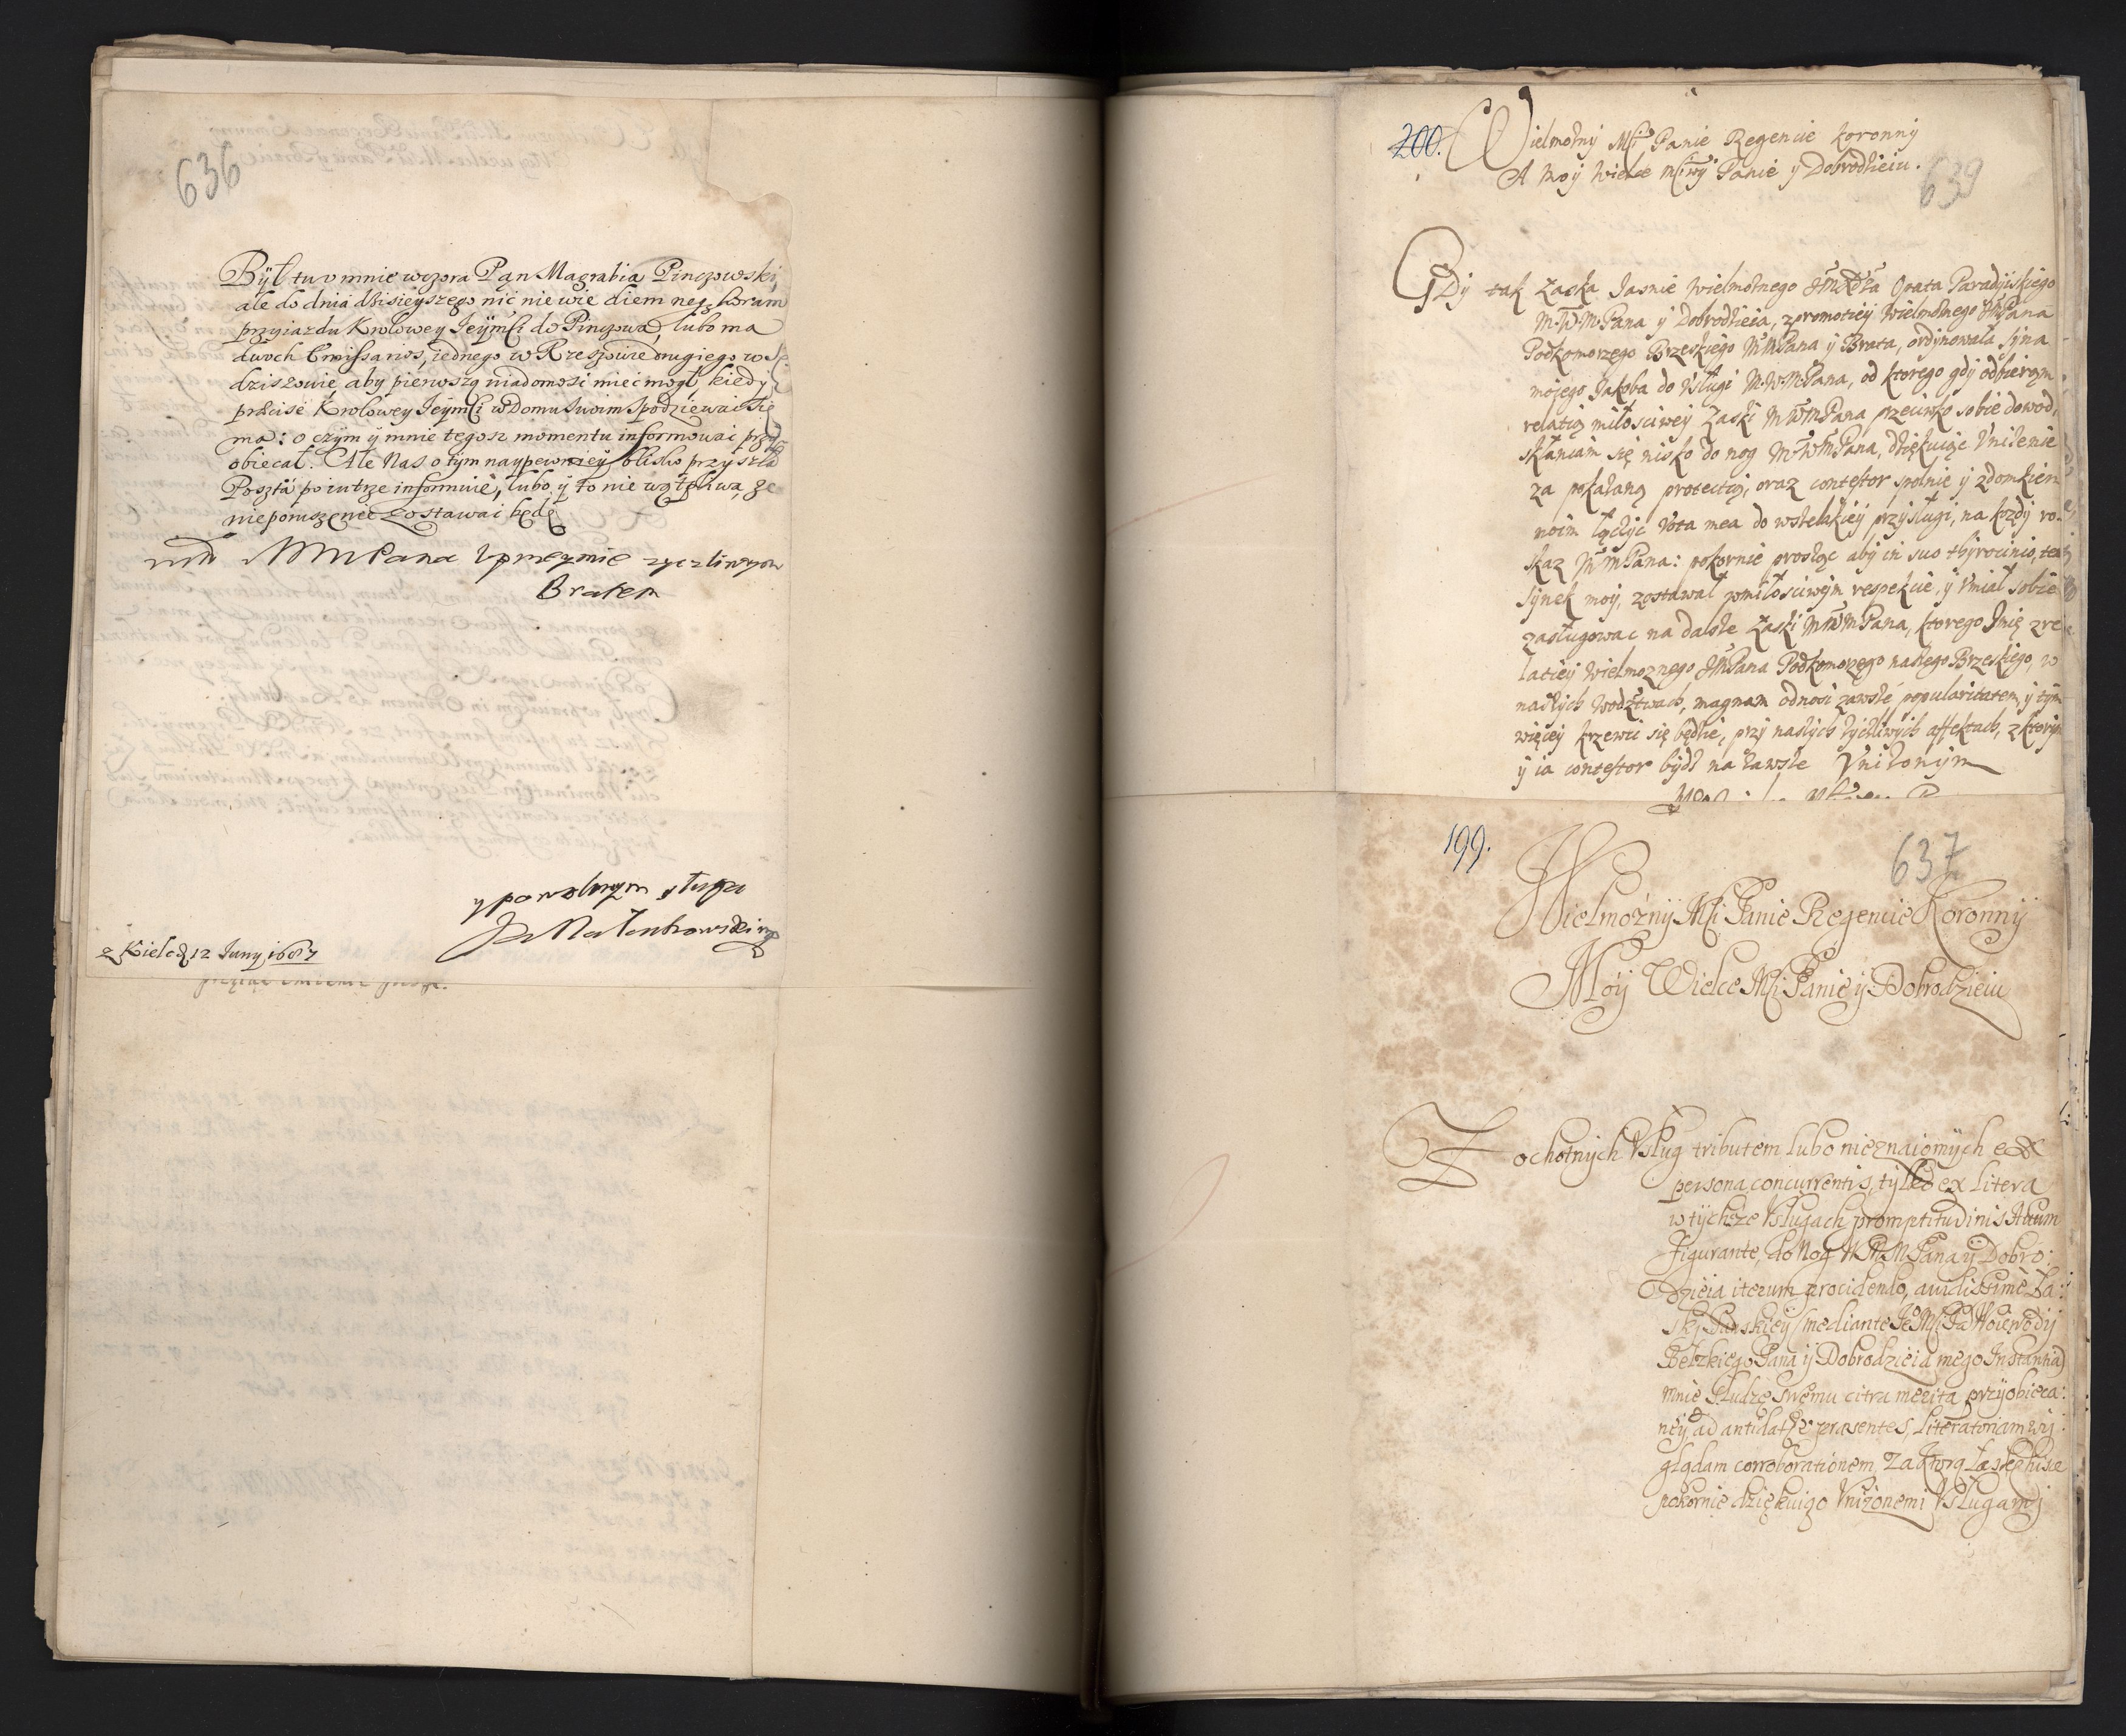 636
Był tu v mnie wczora Pan Magrabia Pinczowski,
ale do dnia dzisieyszego nic nie wie diem neq horam
przyiazdu Krolowey Jeymści do Pinczowa, lubo ma
dwoch Emissarios, iednego w Rzeszowie drugiego w Sę
dziszowie aby pierwszą wiadomość mieć mogł kiedy
præcise Krolowey Jeymści w Domu swoim spodziewać się
ma: o czym y mnie tegosz momentu informować przez
obiecał. Ale Nas o tym naypewniey blisko przyszła
Poszta poiutrze informuie, lubo y to nie wątpliwa, że
nieporuszenie zostawać będę
MMPana Vprzeymie zyczliwym
Bratem
y powolnym sługą
z Kielc d 12 Juny 1687
200.
Wielmożny Mści Panie Regencie Koronny
A Moy Wielce Mściwy Panie y Dobrodzieiu.
639
Gdy tak Łaska Jasnie Wielmożnego Opata Paradyiskiego
M.W.M.Pana y Dobrodzieia, z promotiey Wielmożnego JMPana
Podkomorzego Brzeskiego MMPana y Brata, ordynowała syna
mojego Jakoba do Vsługi M.W.M.Pana, od ktorego gdy odbieram
relatią miłościwey Łaski MWMPana przeciwko sobie dowod,
skłaniam się nisko do nog MWMPana, dziękuiąc Vniżenie
za pokazaną protectią, oraz contestor spolnie y z domkiem
moim łącząc Vota mea do wszelakiey przysługi, na kożdy ro-
skaz MWMPana: pokornie prosząc aby in suo thyrocinio, ten
synek moy, zostawał w miłościwym respekcie, y Vmiał sobie
zasługować na dalsze Łaski MWMPana, ktorego Imię z re
latiey Wielmoznego JMPana Podkomorzego naszego Brzeskiego, w
naszych Wodztwach, magnam odnosi zawsze popularitatem, y tym
więcey krzewić się będzie, przy naszych życzliwych affektach, z ktorym
y ia contestor bydź na zawsze Vniżonym
199.
637
Wielmożny Mści Panie Regencie Koronny
Moy Wielce Mści Panie y Dobrodzieiu
Z ochotnych Vsług tributem lubo nieznaiomych ex
persona concurrentis, tylko ex litera
w tychże Vsługach promptitudinis Actum
figurante, do Nog WMMPana y Dobro:
dzieia iterum procidendo, auidissime Ła:
ski Panskiey (mediante JeMści Pa Woiewody
Bełzkiego Pana y Dobrodzieia mego Instantia)
mnie słudze swemu citra merita przyobieca:
ney, ad antidat præsentes, literatoriam wy
glądam corroborationem. Za ktorą Łaskę
pokornie dziękuiąc Vniżonemi Vsługamy